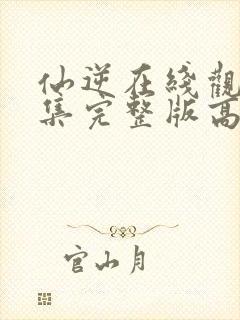 仙逆在綫觀
集完整版高
官山月